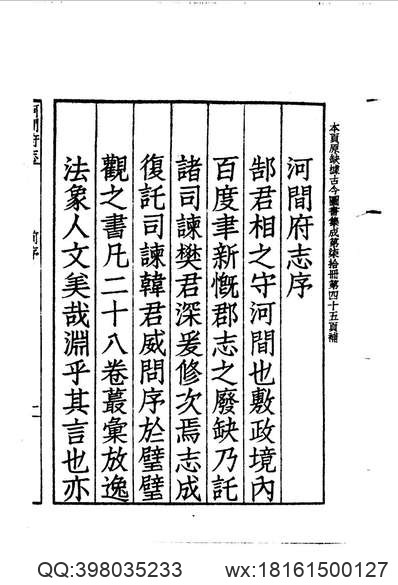 本頁原缺據古今圖書集成第柒拾冊第四十五頁補
河間府志序
郜君相之守河間也敷政境內
百度聿新慨郡志之廢缺乃託
諸司諫樊君深爰修次焉志成
復託司諫韓君威問序於壁壁
觀之書凡二十八卷叢彙放逸
法象人文美哉淵乎其言也亦
河間府志
前序
QQ:398035233 wx:18161500127